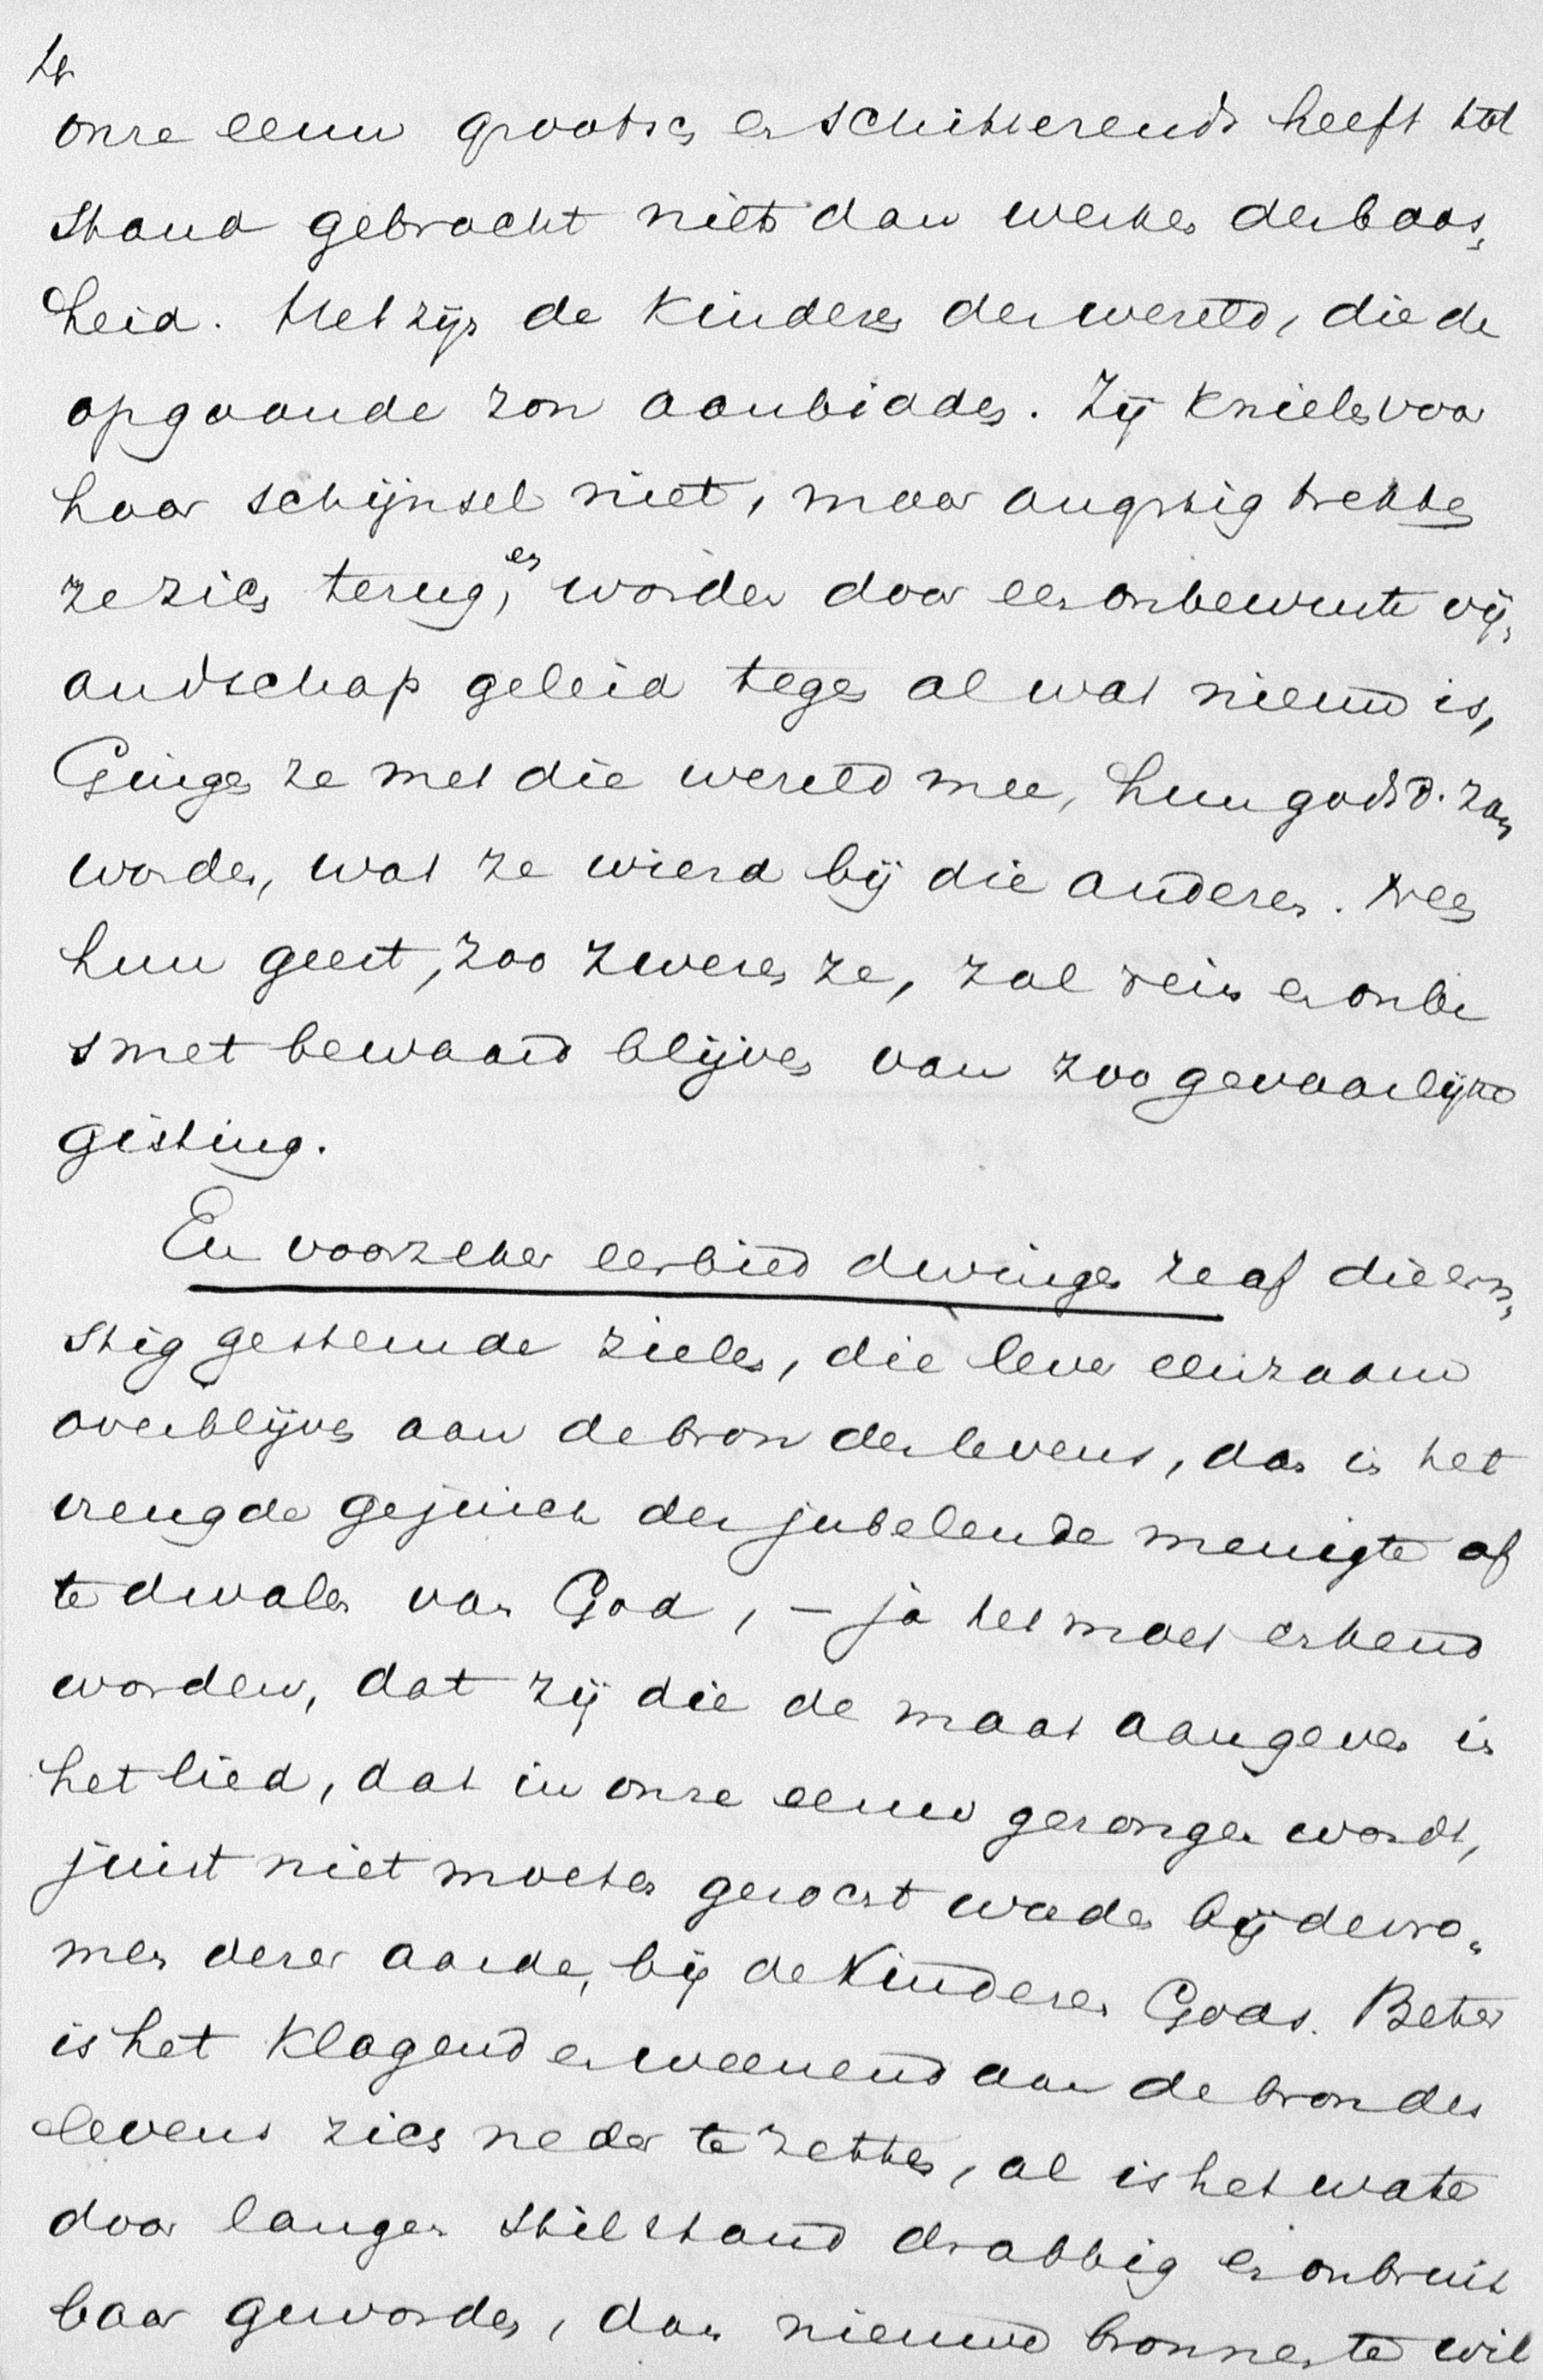 4
onze eeuw grootsch en schitterends heeft tot
stand gebracht niets dan werken der boos„
heid. Het zijn de kinderen der wereld, die de
opgaande zon aanbidden. Zij knielen voor
haar schijnsel niet, maar angstig trekken
ze zich terug, en worden door een onbewuste vij„
andschap geleid tegen al wat nieuw is,
Gingen ze met die wereld mee, hun godsd. zou
worden, wat ze wierd bij die anderen. Neen
hun geest, zoo zweren ze, zal rein en onbe
smet bewaard blijven van zoo gevaarlijke
gisting.
En voorzeker eerbied dwingen ze af die ern„
stig gestemde zielen, die liever eenzaam
overblijven aan de bron des levens, dan in het
vreugde gejuich der jubelende menigte af
te dwalen van God, – ja het moet erkend
worden, dat zij die de maat aangeven in
het lied, dat in onze eeuw gezongen wordt,
juist niet moeten gezocht worden bij de vro„
men dezer aarde, bij de kinderen Gods. Beter
is het klagend en weenend aan de bron des
levens zich neder te zetten, al is het water
door langen stilstand drabbig en onbruik
baar geworden, dan nieuwe bronnen te wil